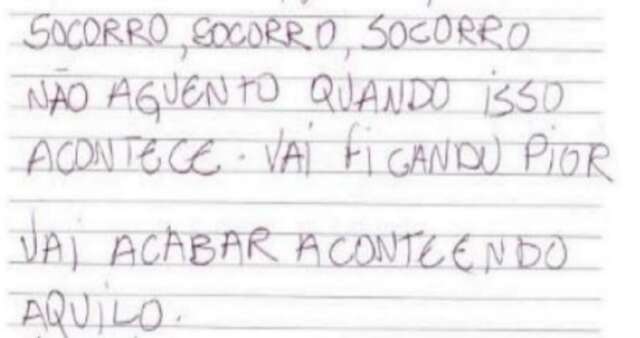 SOCORRO, SOCORRO, SOCORRO
NÃO AGUENTO QUANDO ISSO
ACONTECE. VAI FICANDO PIOR
VAI ACABAR ACONTEENDO
AQUILO.